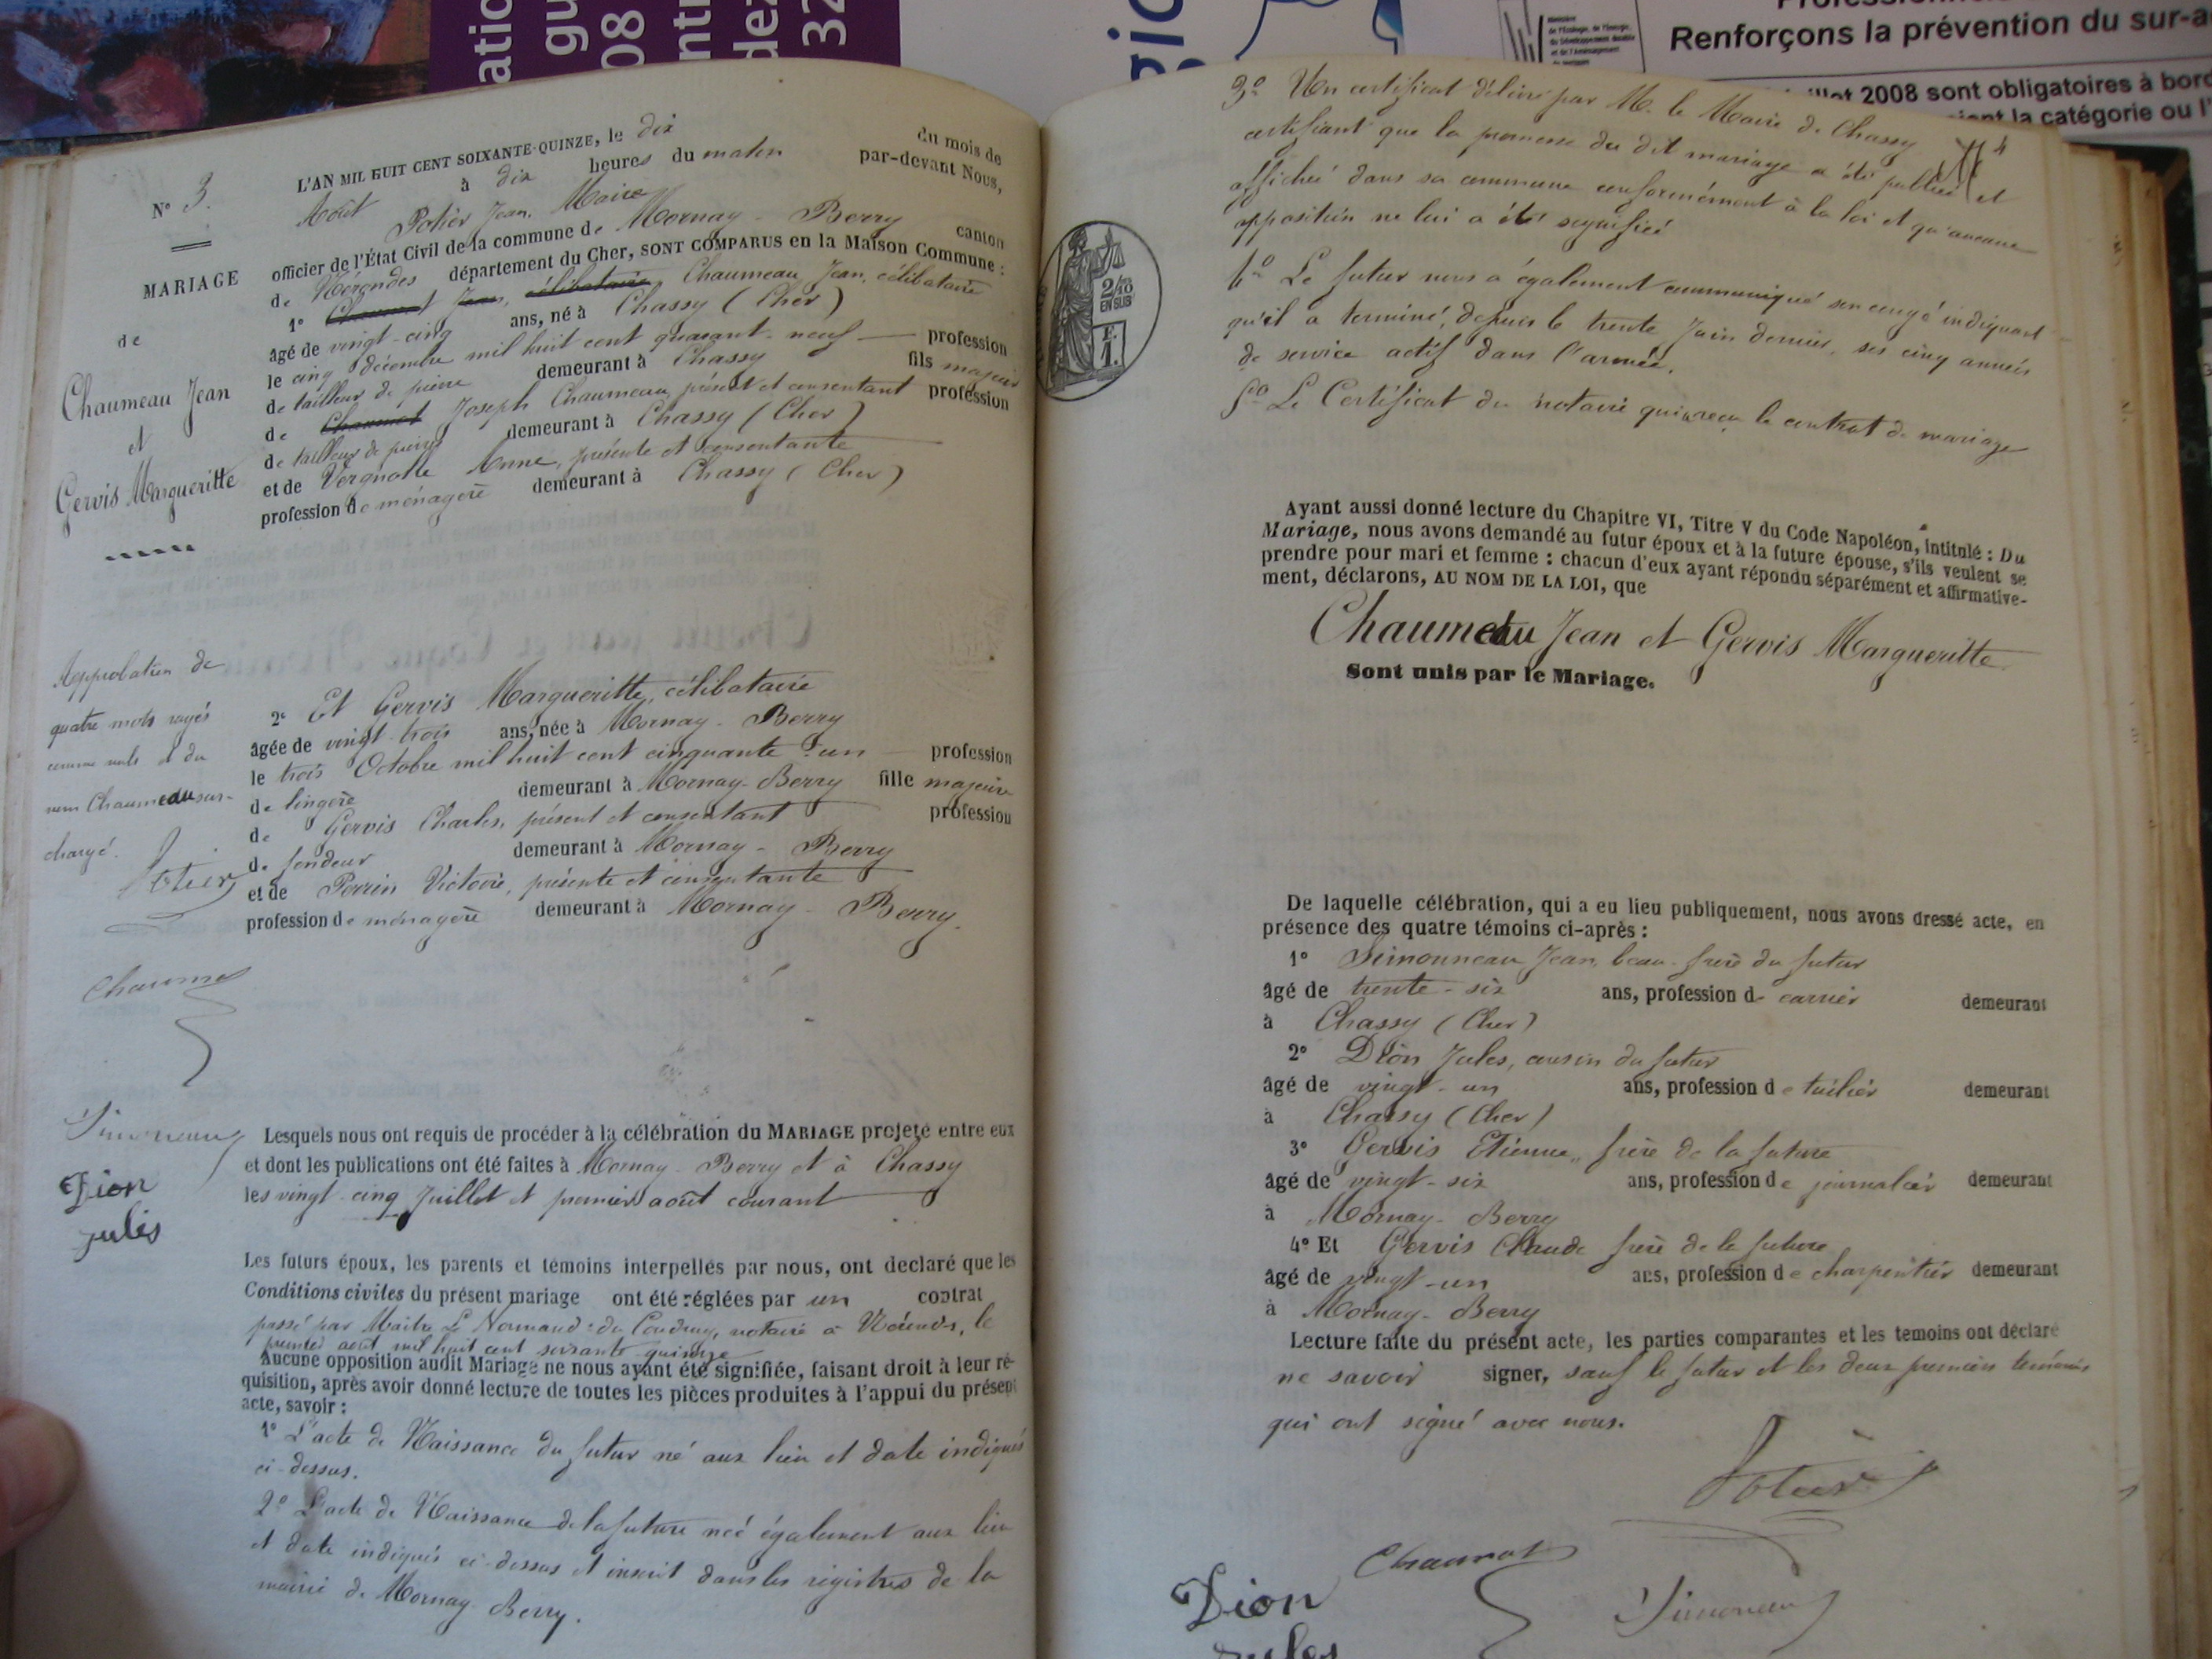 atio
gu
08
nti
dez
32
gio
Renforçons la prévention du sur-a
illet 2008 sont obligatoires à bord
la catégorie ou l'
N° 3.
MARIAGE
de
Chaumeau Jean
et
Gervis Margueritte
Approbation de
quatre mots rayés
comme nuls et du
nom Chaumeau sur-
chargé.
Potier
Chaumet
Simoneau
Dion
jules
L'AN MIL HUIT CENT SOIXANTE-QUINZE, le dix du mois de
Août à dix heures du matin par-devant Nous,
Potier Jean, Maire
officier de l'État Civil de la commune de Mornay-Berry canton
de Nérondes département du Cher, SONT COMPARUS en la Maison Commune :
1° Chaumet Jean, célibataire Chaumeau Jean, célibataire
âgé de vingt-cinq ans, né à Chassy (Cher)
le cinq décembre mil huit cent quarant-neuf profession
de tailleur de pierre demeurant à Chassy fils majeur
de Chaumet Joseph Chaumeau, présent et consentant profession
de tailleur de pierre demeurant à Chassy (Cher)
et de Vergnolle Anne, présente et consentante
profession de ménagère demeurant à Chassy (Cher)
2° Et Gervis Margueritte, célibataire
âgée de vingt-trois ans, née à Mornay-Berry
le trois Octobre mil huit cent cinquante-un profession
de lingère demeurant à Mornay-Berry fille majeure
de Gervis Charles, présent et consentant profession
de fondeur demeurant à Mornay-Berry
et de Perrin Victoire, présente et consentante
profession de ménagère demeurant à Mornay-Berry.
Lesquels nous ont requis de procéder à la célébration du MARIAGE projeté entre eux
et dont les publications ont été faites à Mornay-Berry et à Chassy
les vingt-cinq Juillet et premier août courant
Les futurs époux, les parents et témoins interpellés par nous, ont déclaré que les
Conditions civiles du présent mariage ont été réglées par un contrat
passé par Maître Le Normand du Coudray, notaire à Nérondes, le
premier août mil huit cent soixante quinze
Aucune opposition audit Mariage ne nous ayant été signifiée, faisant droit à leur ré-
quisition, après avoir donné lecture de toutes les pièces produites à l'appui du présent
acte, savoir :
1° L'acte de Naissance du futur né aux lieu et date indiqués
ci-dessus.
2° L'acte de Naissance de la future née également aux lieu
et date indiqués ci-dessus et inscrit dans les registres de la
mairie de Mornay-Berry.
4
3° Un certificat délivré par M. le Maire de Chassy
certifiant que la promesse du dit mariage a été publiée et
affichée dans sa commune conformément à la loi et qu'aucune
opposition ne lui a été signifiée
2/10
EN SUS
E.
1.
4° Le futur nous a également communiqué son congé indiquant
qu'il a terminé, depuis le trente Juin dernier, ses cinq années
de service actif dans l'armée.
5° Le Certificat du notaire qui a reçu le contrat de mariage
Ayant aussi donné lecture du Chapitre VI, Titre V du Code Napoléon, intitulé : Du
Mariage, nous avons demandé au futur époux et à la future épouse, s'ils veulent se
prendre pour mari et femme : chacun d'eux ayant répondu séparément et affirmative-
ment, déclarons, AU NOM DE LA LOI, que
Chaumeau Jean et Gervis Margueritte
Sont unis par le Mariage.
De laquelle célébration, qui a eu lieu publiquement, nous avons dressé acte, en
présence des quatre témoins ci-après :
1° Simonneau Jean, beau-frère du futur
âgé de trente-six ans, profession de carrier demeurant
à Chassy (Cher)
2° Dion Jules, cousin du futur
âgé de vingt-un ans, profession de tuilier demeurant
à Chassy (Cher)
3° Gervis Etienne, frère de la future
âgé de vingt-six ans, profession de journalier demeurant
à Mornay-Berry
4° Et Gervis Claude frère de la future
âgé de vingt-un ans, profession de charpentier demeurant
à Mornay-Berry
Lecture faite du présent acte, les parties comparantes et les temoins ont déclaré
ne savoir signer, sauf le futur et les deux premiers témoins
qui ont signé avec nous.
Potier
Chaumet
Simoneau
Dion
jules